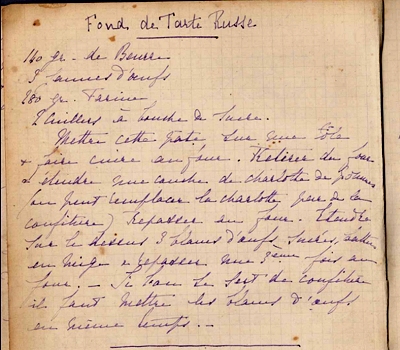 Fond de Tarte Russe
140 gr. de Beurre
3 jaunes d'œufs
280 gr. Farine
2 cuillers à bouche de Sucre.
Mettre cette pâte sur une tôle
& faire cuire au four. Retirer du four
& étendre une couche de charlotte de pommes
(on peut remplacer la charlotte par de la
confiture) Repasser au four. Etendre
sur le dessus 3 blancs d'œufs, sucrés, battus
en neige & repasser une 3ème fois au
four. — Si l'on se sert de confiture
il faut mettre les blancs d'œufs
en même temps. —